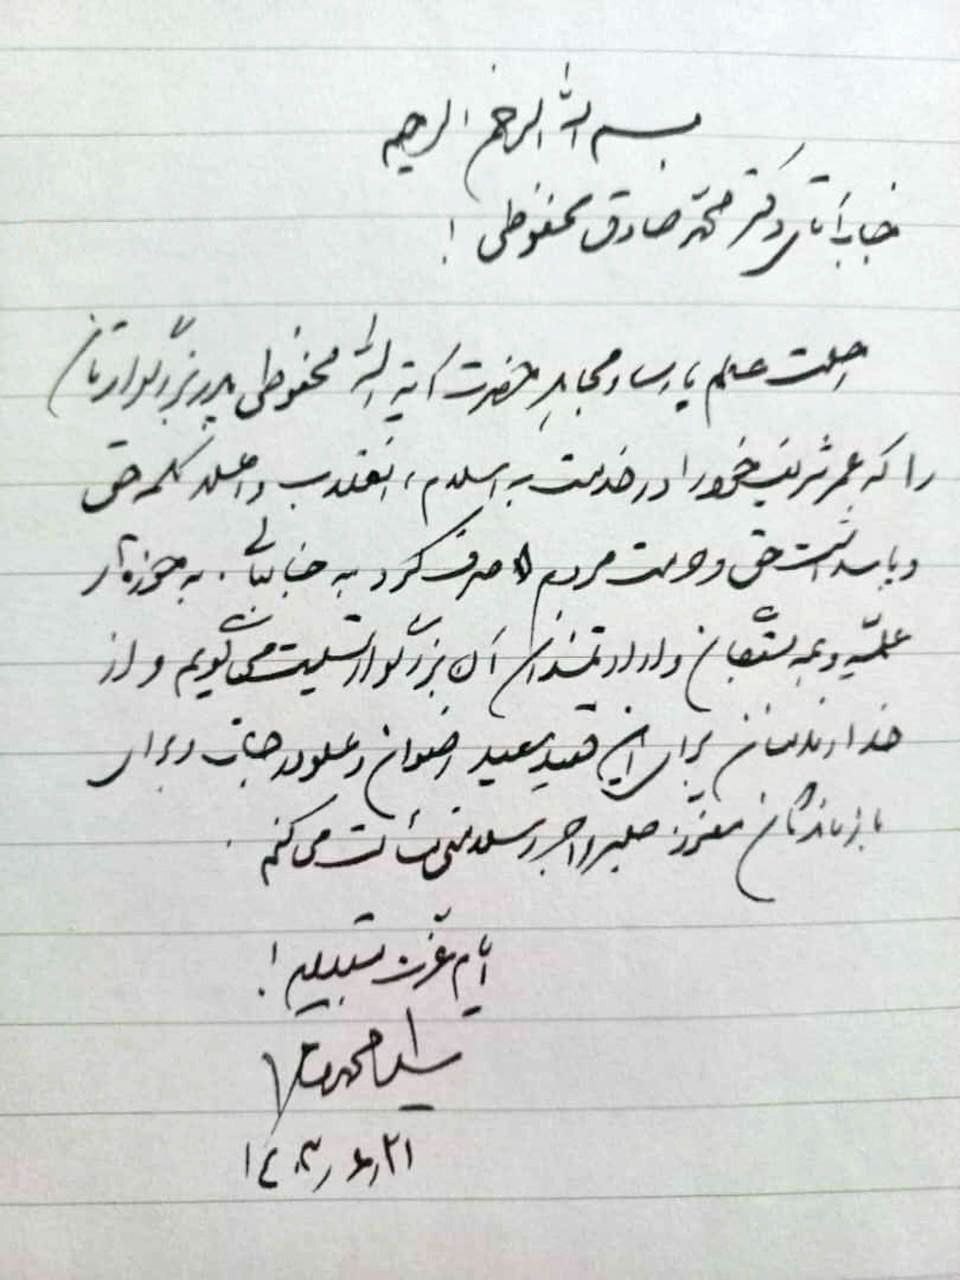 بسم الله الرحمن الرحیم
جناب آقای دکتر محمد صادق محفوظی!
رحلت عالم پارسا و مجاهد حضرت آیة الله محفوظی پدر بزرگوارتان
را که عمر شریف خود را در خدمت به اسلام، انقلاب و اعلاء کلمه حق
و پاسداشت حق و حرمت مردم صرف کرد به جنابعالی، به حوزه‌های
علمیّه و به همه بستگان و ارادتمندان آن بزرگوار تسلیت می‌گویم و از
خداوند منان برای این فقید سعید رضوان و علو درجات و برای
بازماندگان معزز صبر و اجر و سلامتی مسألت می‌کنم.
ایّام عزت مستدام!
سید محمد خاتمی
۱۴۰۳/۶/۲۱